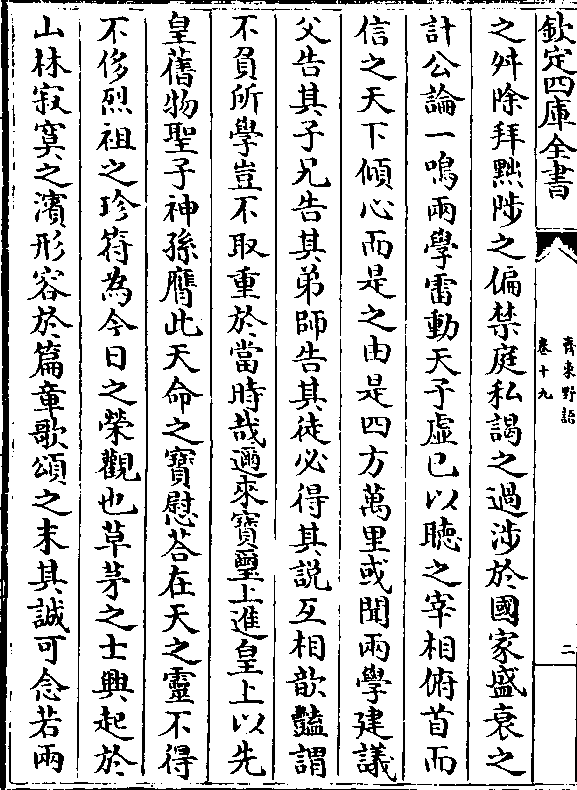 欽定四庫全書
齊東野語
卷十九
二
之舛除拜黜陟之偏禁庭私謁之過涉於國家盛衰之
計公論一鳴兩學雷動天子虛已以聽之宰相俯首而
信之天下傾心而是之由是四方萬里或聞兩學建議
父告其子兄告其弟師告其徒必得其説互相歆豔謂
不負所學豈不取重於當時哉邇來寶璽上進皇上以先
皇舊物聖子神孫膺此天命之寶慰荅在天之靈不得
不侈烈祖之珍符為今日之榮觀也草茅之士興起於
山林寂寞之濱形容於篇章歌頌之末其誠可念若兩